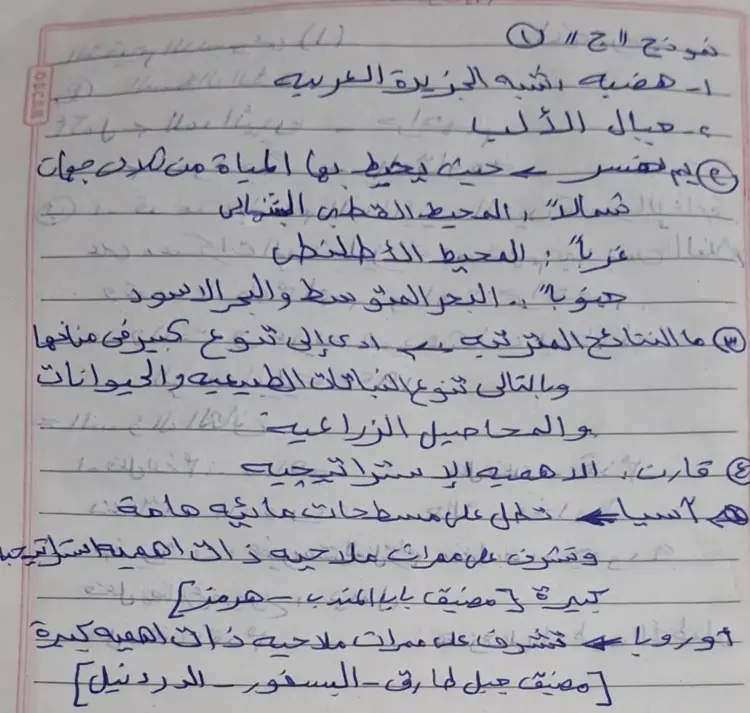 نموذج "ج" ①
١- هضبه شبه الجزيرة العربيه
٢- جبال الألب
② بم تفسر ← حيث يحيط بها المياة من ثلاث جهات
شمالاً: المحيط القطبى الشمالى
غرباً: المحيط الأطلنطى
جنوباً: البحر المتوسط والبحر الاسود
③ ما النتائج المترتبه ← ادى إلى تنوع كبير فى مناخها
وبالتالى تنوع النباتات الطبيعيه والحيوانات
والمحاصيل الزراعية
④ قارن: الاهميه الإستراتيجيه
آسيا ← تطل على مسطحات مائيه هامة
وتشرف على ممرات ملاحيه ذات اهميه استراتيجيه
كبيرة [مضيق باب المندب - هرمز]
أوروبا ← تشرف على ممرات ملاحيه ذات اهميه كبيرة
[مضيق جبل طارق - البسفور - الدردنيل]
OSCAR